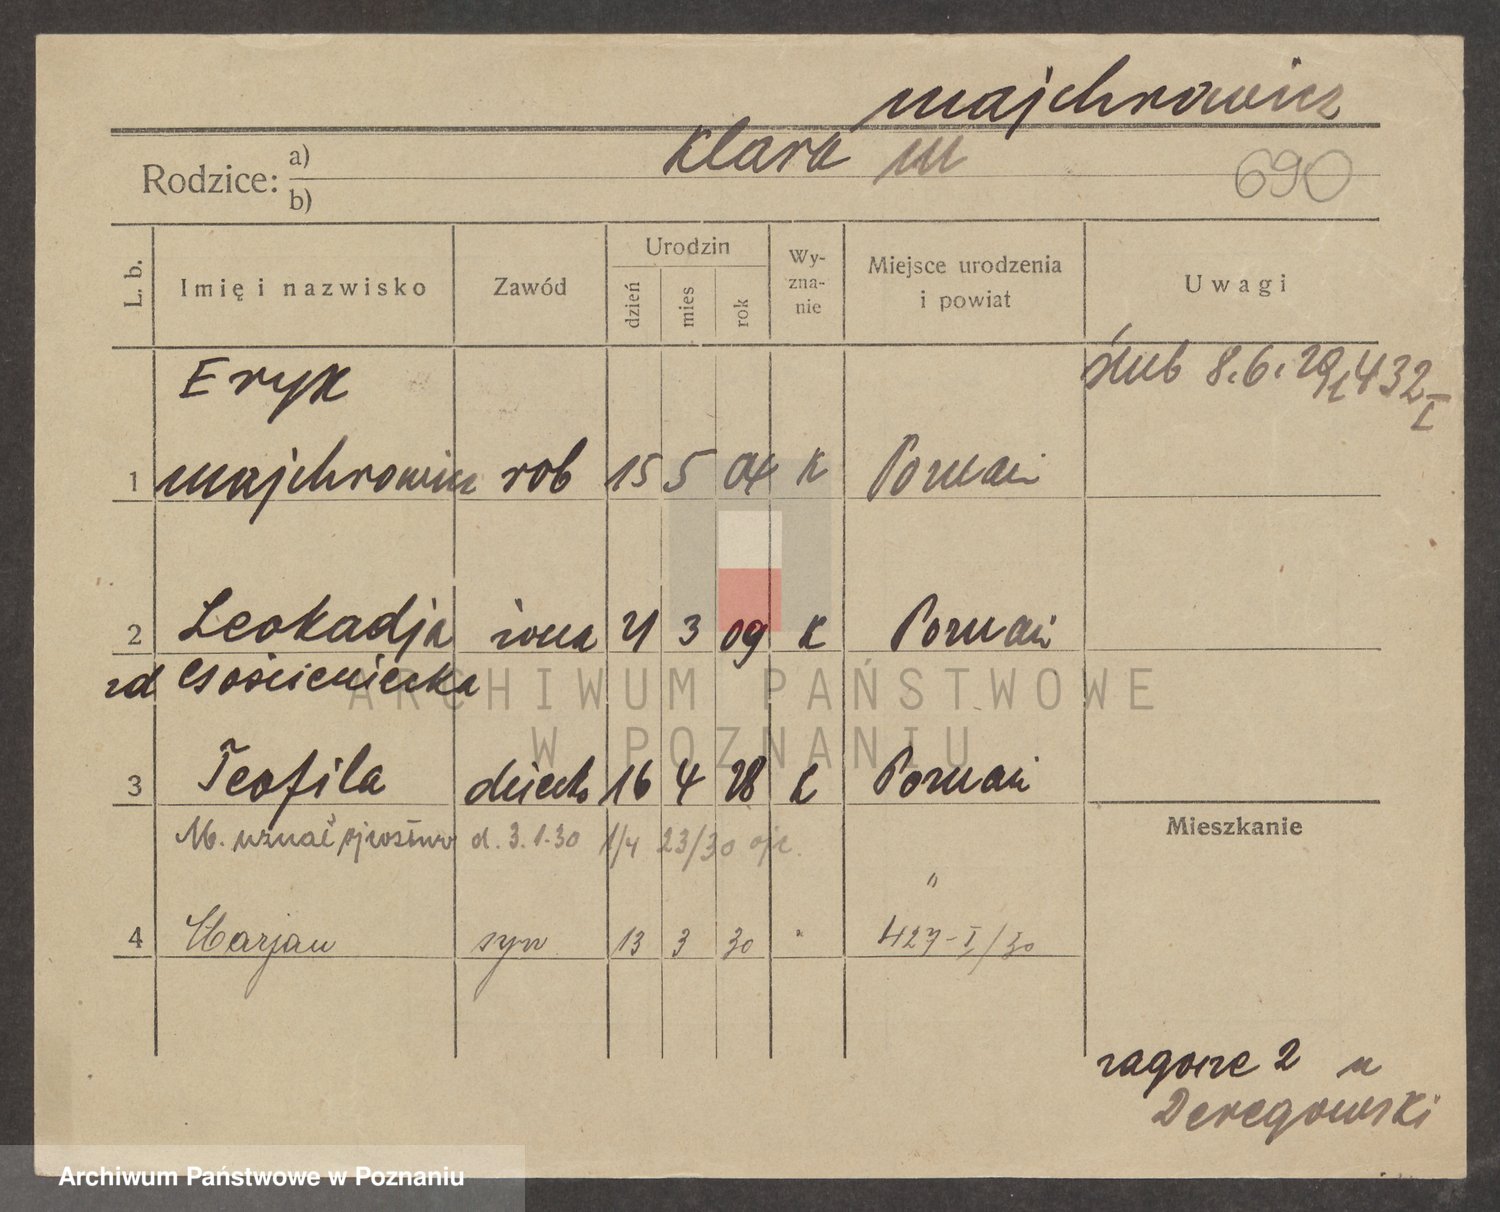 majchrowicz
Rodzice: a) Klara m
b)
690
L. b. Imię i nazwisko Zawód Urodzin dzień mies rok Wy-zna-nie Miejsce urodzenia i powiat Uwagi
Eryk ślub 8.6.29
1 majchrowicz rob 15 5 04 K Poznań
2 Leokadja żona 21 3 09 K Poznań
zd
ARCHIWUM PAŃSTWOWE
W POZNANIU
3 Teofila dziecko 16 4 28 K Poznań
M. uznać d. 3.1.30 1/4 23/30 ojc.
Mieszkanie
"
4 Marjan syn 13 3 30 " 427-I/30
zagorze 2 u
Deregowski
Archiwum Państwowe w Poznaniu